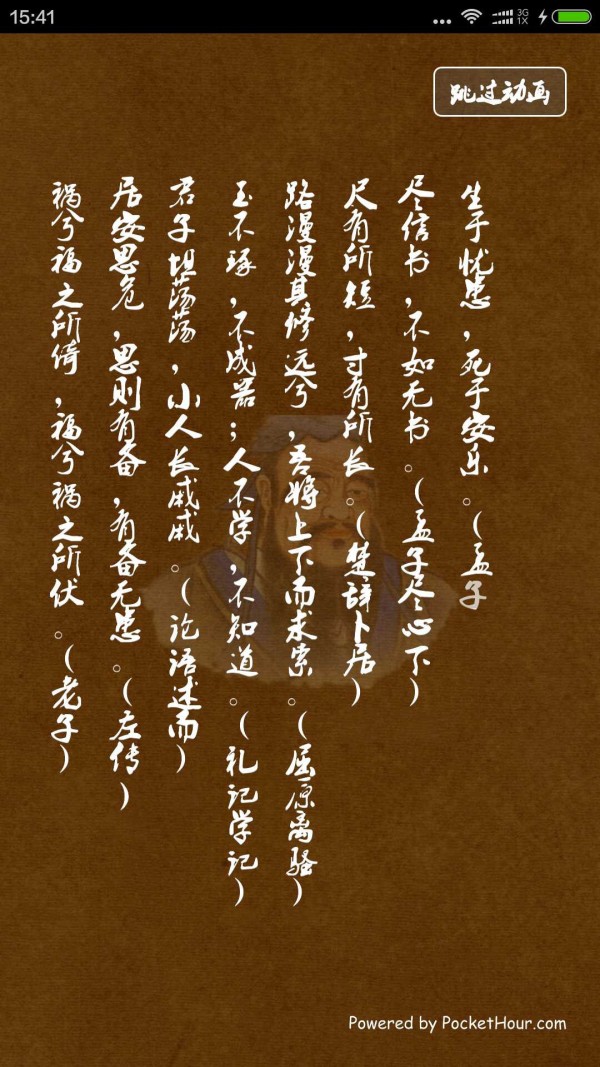 15:41
3G
1X
跳过动画
祸兮福之所倚，福兮祸之所伏。(老子)
居安思危，思则有备，有备无患。(左传)
君子坦荡荡，小人长戚戚。(论语述而)
玉不琢，不成器；人不学，不知道。(礼记学记)
路漫漫其修远兮，吾将上下而求索。(屈原离骚)
尺有所短，寸有所长。(楚辞卜居)
尽信书，不如无书。(孟子尽心下)
生于忧患，死于安乐。(孟子
Powered by PocketHour.com